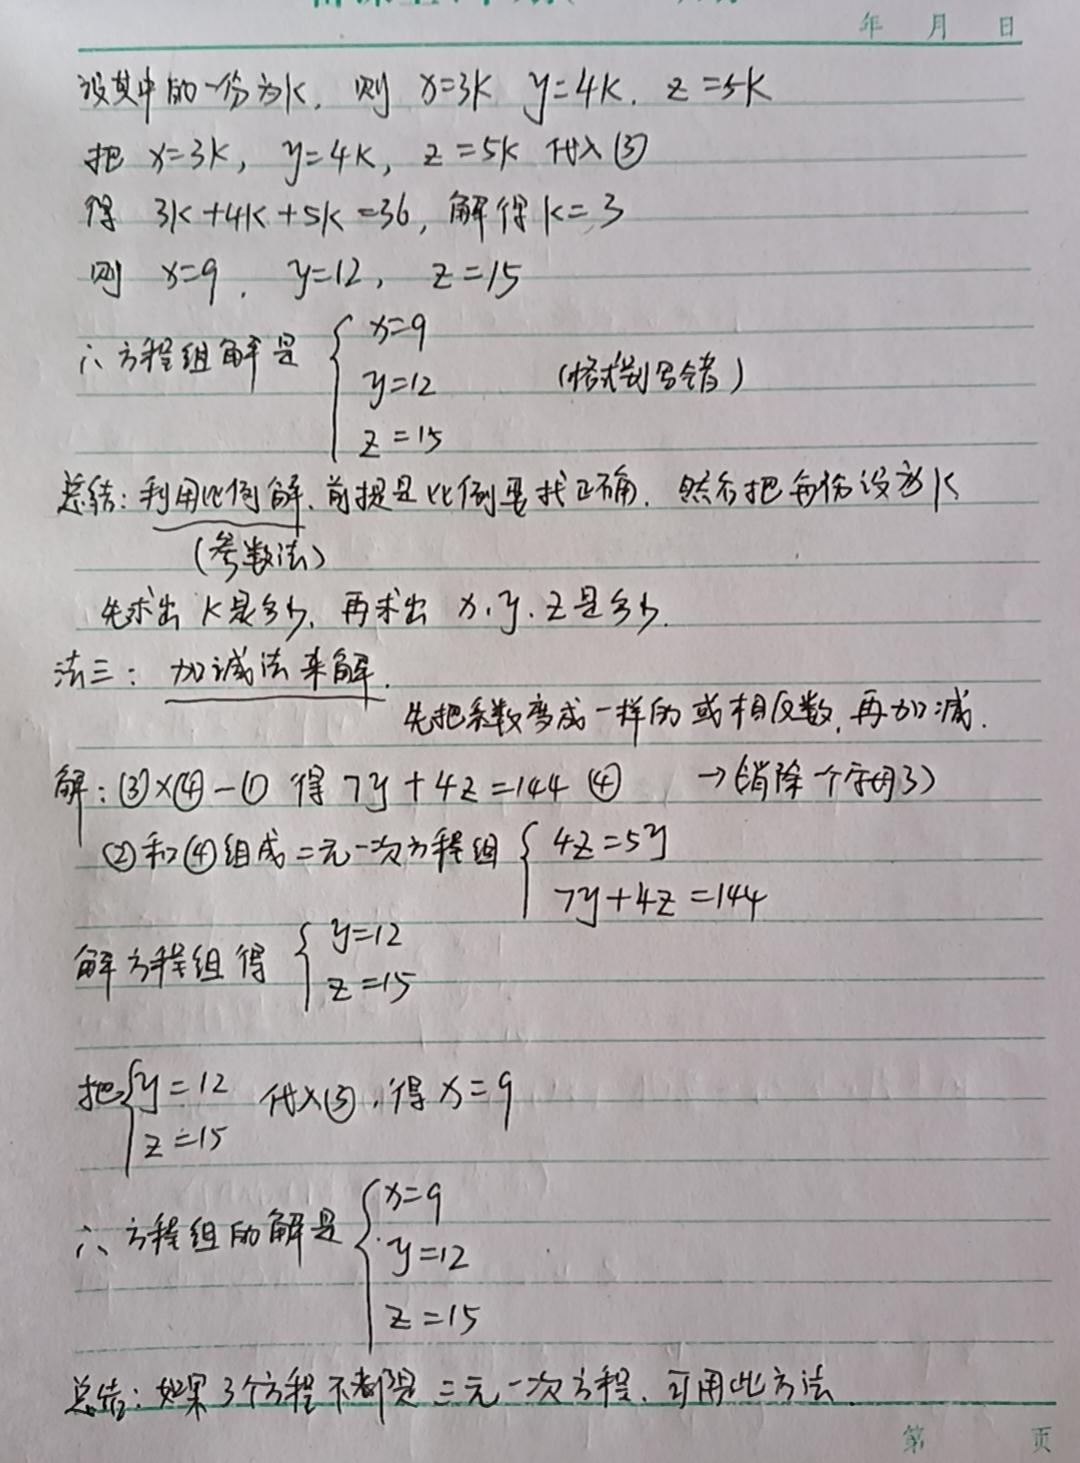 年 月 日
设其中的一份为k. 则 x=3k y=4k. z=5k
把 x=3k, y=4k, z=5k 代入③
得 3k+4k+5k=36, 解得 k=3
则 x=9. y=12, z=15
∴方程组解是 { x=9
y=12 (格式别写错)
z=15
总结: 利用比例解. 前提是比例要找正确. 然后把每份设为k
(参数法)
先求出 k是多少, 再求出 x.y.z是多少.
法三: 加减法来解.
先把系数变成一样的或相反数, 再加减.
解: ③×④-① 得 7y+4z=144 ④ →(消除一个字母了)
②和④组成二元一次方程组 { 4z=5y
7y+4z=144
解方程组得 { y=12
z=15
把{y=12 代入③, 得 x=9
z=15
∴方程组的解是 { x=9
y=12
z=15
总结: 如果3个方程不都是三元一次方程. 可用此方法.
第 页